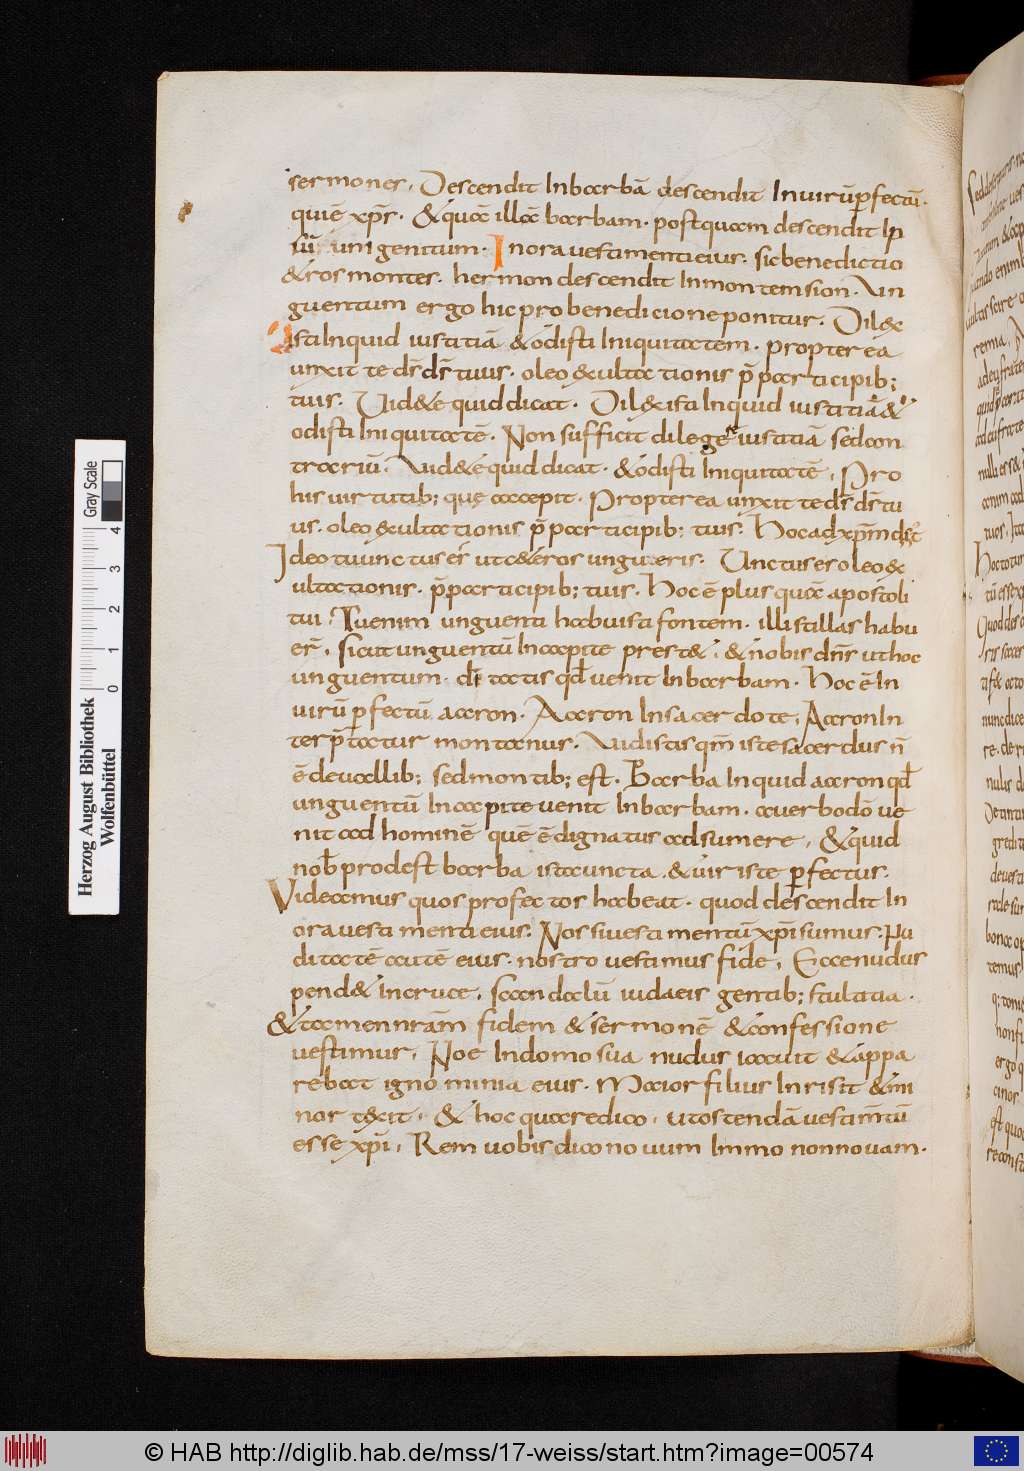 sermones. Descendit In barbā descendit In virū ꝑfectū.
qui ē xp̄s. & quā illā barbam. postquam descendit Ip
sū unigenitum. In ora vestimenti eius. sic benedictio
& ros montes. hermon descendit In montem sion. un
guentum ergo hic pro benedicione ponitur. Dil&
isti Inquid iustitiā & odisti Iniquitatem. propterea
unxit te ds̄ ds̄ tuus. oleo exultationis p̄ participib;
tuis. Vid&e quid dicat. Dil&isti Inquid iustitiā &
odisti Iniquitatē. Non sufficit diligere iustitiā sed con
trariū. Vid&e quid dicat. & odisti Iniquitatē. Pro
his uirtutib; quę accepit. Propterea unxit te ds̄ ds̄ tu
us. oleo exultationis p̄ participib; tuis. Hoc ad xp̄m dr̄
Ideo tu unctus es ut c&eros ungueris. Unctus es oleo &
ultationis. p̄ participib; tuis. Hoc ē plus quā apostoli
tui. Tu enim unguenti habuisti fontem. illi stillas habu
er̄. sicut unguentū In capite prest&. & nobis dn̄s ut hoc
unguentum. de tatis qđ venit In barbam. Hoc ē In
uirū ꝑfectū aaron. Aaron In sacerdote. Aaron In
terp̄tatur montanus. Audistis qm̄ iste sacerdus n̄
ē de uallib; sed montib; est. Barba Inquid aaron qđ
unguentū In capite venit In barbam. a verbo dō ve
nit ad hominē quē ē dignatus adsumere. & quid
nob̄ prodest barba ista cuncta. & uir iste ꝑfectus.
Videamus quos profectos habeat. quod descendit In
ora vestimenti eius. Nos si vestimentū xp̄i sumus. Nu
ditatē autē eius. nostro vestimus fide. Ecce nudus
pend& In cruce. scandalū iudaeis gentib; stultitia.
& tamen nr̄am fidem & sermonē & confessione
vestimur. Noe In domo sua nudus iacuit & appa
rebat ignominia eius. Maior filius Inrisit & mi
nor t&xit. & hoc quare dico. ut ostendā vestim̄tū
esse xp̄i. Rem vobis dico novum Immo non novam.
Herzog August Bibliothek
Wolfenbüttel
0 1 2 3 4
Gray Scale
© HAB http://diglib.hab.de/mss/17-weiss/start.htm?image=00574